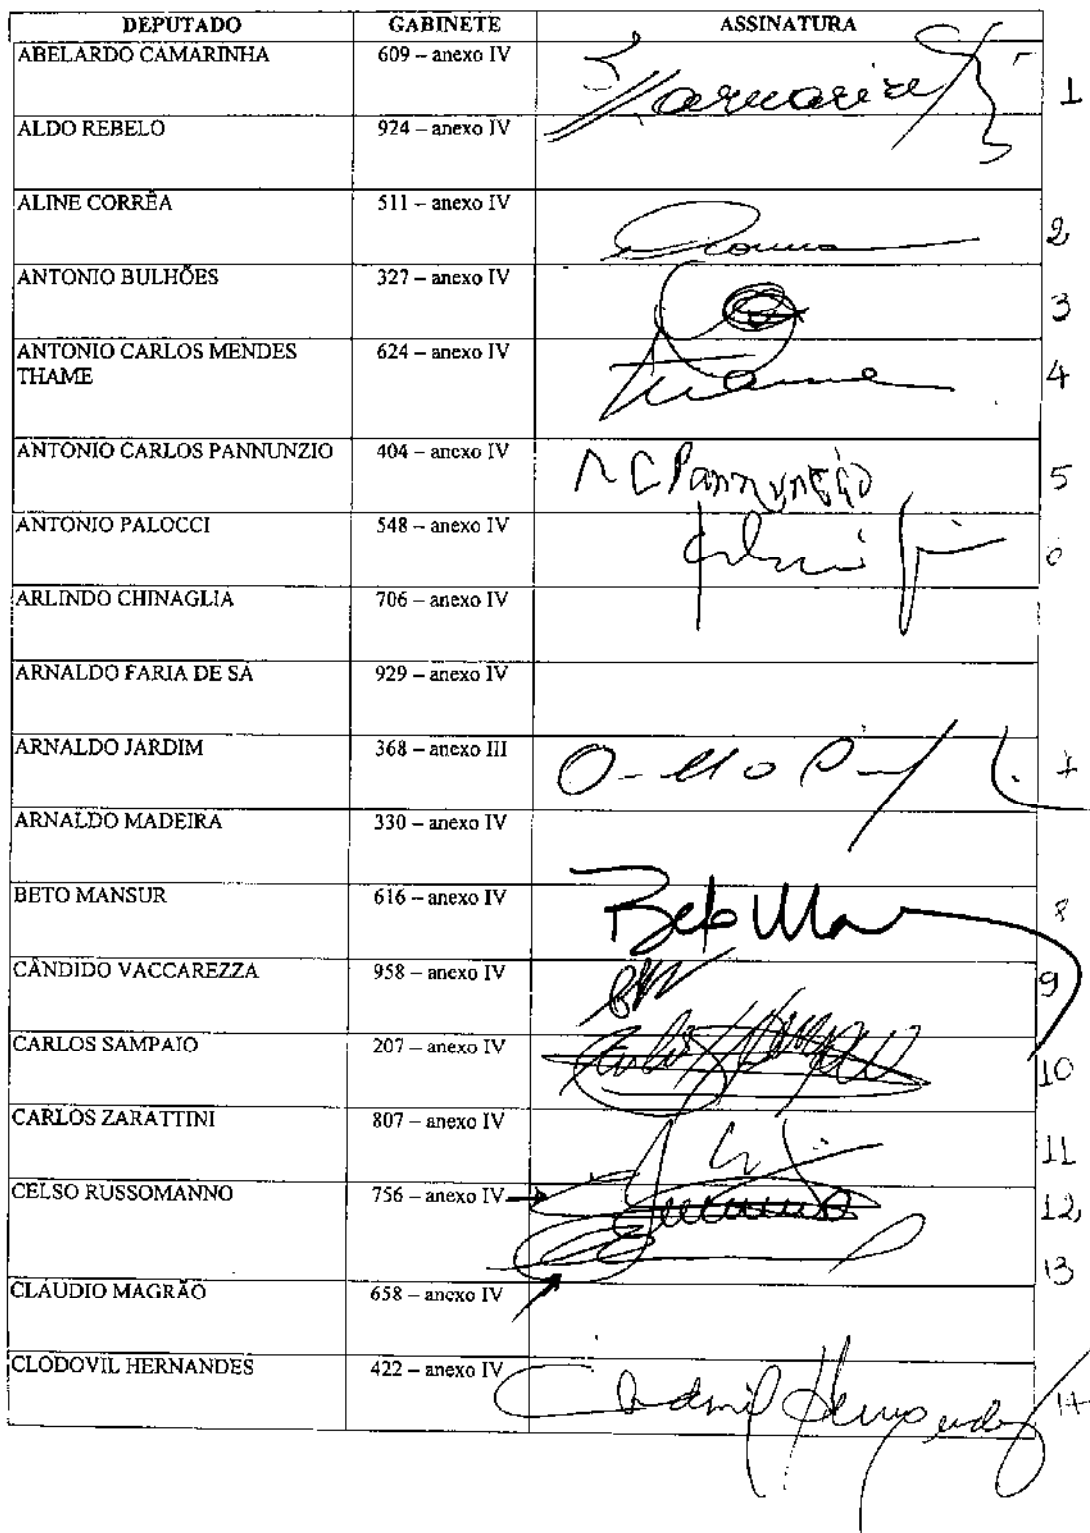 DEPUTADO GABINETE ASSINATURA
ABELARDO CAMARINHA 609 – anexo IV 1
ALDO REBELO 924 – anexo IV
ALINE CORRÊA 511 – anexo IV 2
ANTONIO BULHÕES 327 – anexo IV 3
ANTONIO CARLOS MENDES 624 – anexo IV Thame 4
THAME
ANTONIO CARLOS PANNUNZIO 404 – anexo IV AC Pannunzio 5
ANTONIO PALOCCI 548 – anexo IV 6
ARLINDO CHINAGLIA 706 – anexo IV
ARNALDO FARIA DE SÁ 929 – anexo IV
ARNALDO JARDIM 368 – anexo III 7
ARNALDO MADEIRA 330 – anexo IV
BETO MANSUR 616 – anexo IV Beto Man 8
CÂNDIDO VACCAREZZA 958 – anexo IV 9
CARLOS SAMPAIO 207 – anexo IV 10
CARLOS ZARATTINI 807 – anexo IV 11
CELSO RUSSOMANNO 756 – anexo IV 12
13
CLAUDIO MAGRÃO 658 – anexo IV
CLODOVIL HERNANDES 422 – anexo IV Clodovil Hernandes 14